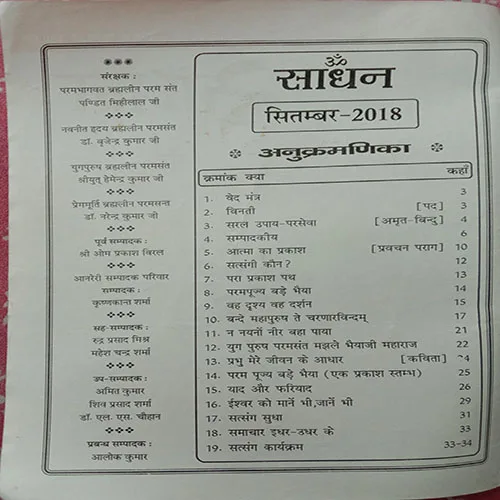 संरक्षक :
परमभागवत ब्रह्मलीन परम संत
पण्डित मिहीलाल जी
नवनीत हृदय ब्रह्मलीन परमसंत
डॉ. बृजेन्द्र कुमार जी
युगपुरुष ब्रह्मलीन परमसंत
श्रीयुत् हेमेन्द्र कुमार जी
प्रेममूर्ति ब्रह्मलीन परमसन्त
डॉ. नरेन्द्र कुमार जी
पूर्व सम्पादक :
श्री ओम प्रकाश विरल
आनरेरी सम्पादक परिवार
सम्पादक :
कृष्णकान्त शर्मा
सह-सम्पादक :
रुद्र प्रसाद मिश्र
महेश चन्द्र शर्मा
उप-सम्पादक :
अमित कुमार
शिव प्रसाद शर्मा
डॉ. एल. एस. चौहान
प्रबन्ध सम्पादक :
आलोक कुमार
ॐ
साधन
सितम्बर-2018
अनुक्रमणिका
क्रमांक क्या कहाँ
1. वेद मंत्र 3
2. विनती [पद] 3
3. सरल उपाय-परसेवा [अमृत-बिन्दु] 4
4. सम्पादकीय 6
5. आत्मा का प्रकाश [प्रवचन पराग] 10
6. सत्संगी कौन ? 12
7. परा प्रकाश पथ 13
8. परमपूज्य बड़े भैया 14
9. वह दृश्य वह दर्शन 15
10. बन्दे महापुरुष ते चरणारविन्दम् 17
11. न नयनों नीर बहा पाया 21
12. युग पुरुष परमसंत मझले भैयाजी महाराज 22
13. प्रभु मेरे जीवन के आधार [कविता]
14. परम पूज्य बड़े भैया (एक प्रकाश स्तम्भ) 25
15. याद और फरियाद 26
16. ईश्वर को मानें भी,जानें भी 29
17. सत्संग सुधा 31
18. समाचार इधर-उधर के 33
19. सत्संग कार्यक्रम 33-34